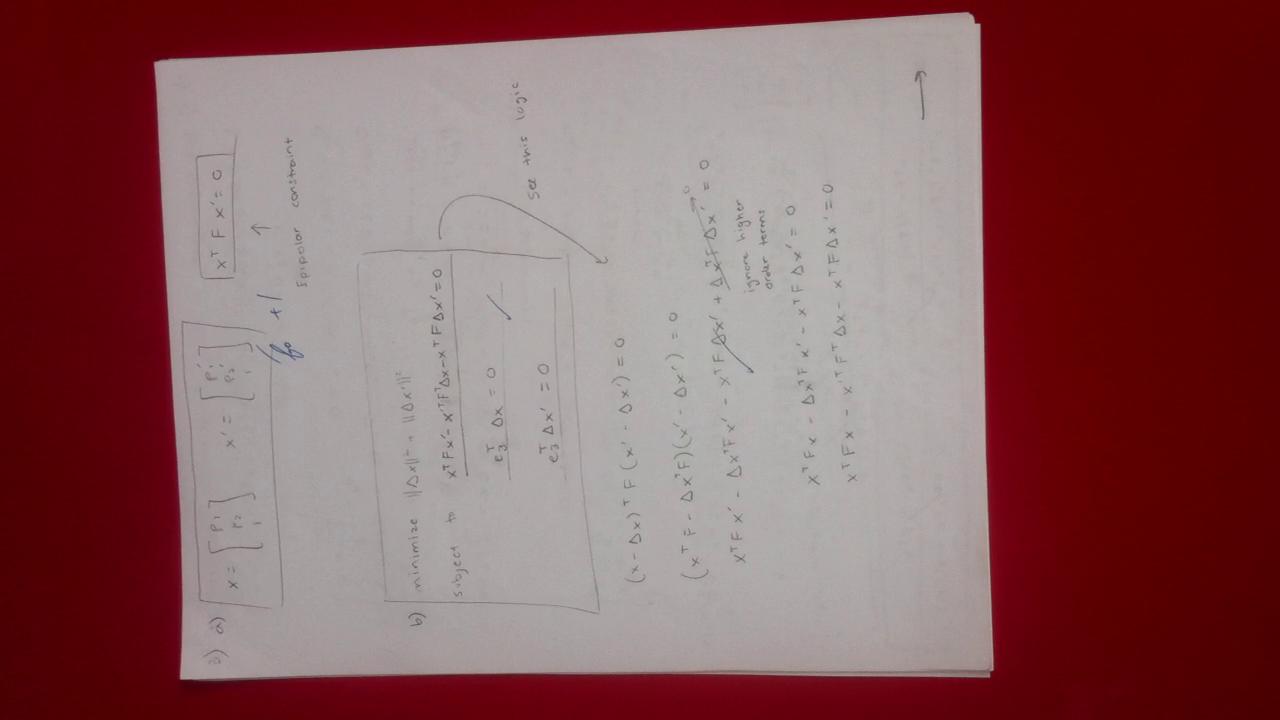 3) a) x = [p₁ p₂ 1] x' = [p₁' p₂' 1] xᵀ F x' = 0
↑
Epipolar constraint
b) minimize ||Δx||² + ||Δx'||²
subject to xᵀFx' - x'ᵀFᵀΔx - xᵀFΔx' = 0
e₃ᵀ Δx = 0 ✓
e₃ᵀ Δx' = 0
see this logic
(x - Δx)ᵀ F (x' - Δx') = 0
(xᵀF - ΔxᵀF)(x' - Δx') = 0
xᵀFx' - ΔxᵀFx' - xᵀFΔx' + ΔxᵀFΔx' → 0 = 0
ignore higher
order terms
xᵀFx - ΔxᵀFx' - xᵀFΔx' = 0
xᵀFx - x'ᵀFᵀΔx - xᵀFΔx' = 0
→